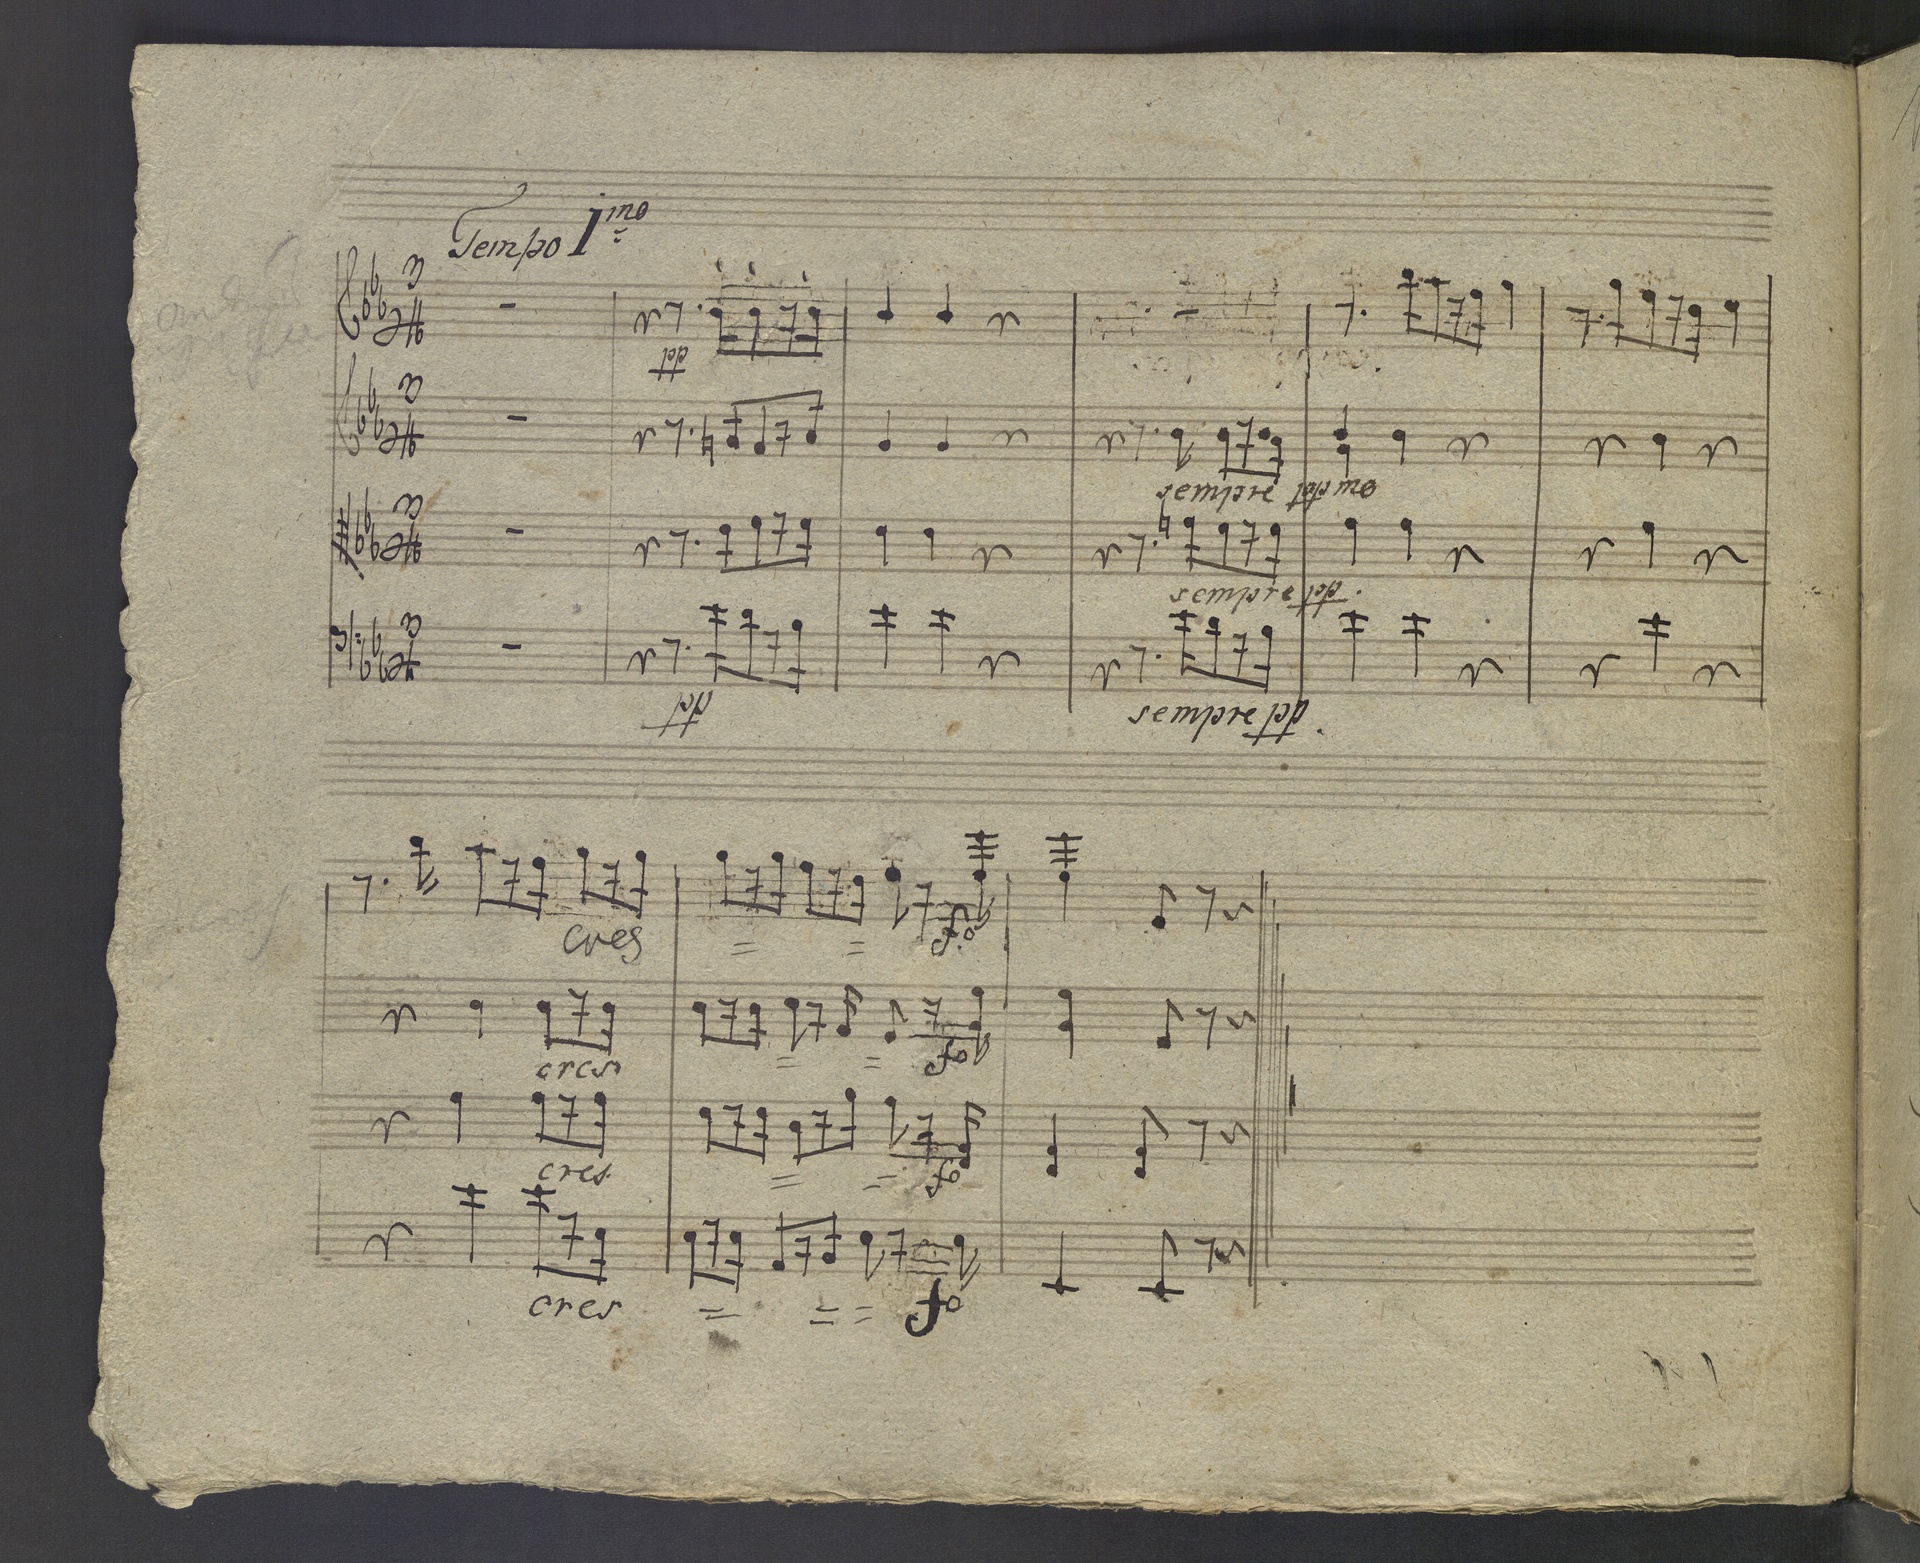 Tempo I mo
pp
sempre ppmo
sempre pp.
pp
sempre pp.
cres
= =
fo
cres
= =
fo
cres
= =
fo
cres
= = =
fo